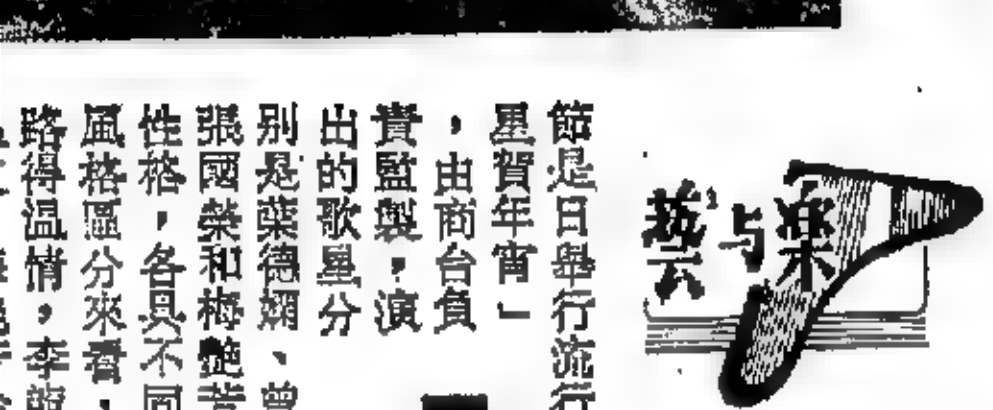 藝与楽
節是日舉行流行
星賀年宵」
，由商台負
責監製，演
出的歌星分
別是葉德嫻、曾
張國榮和梅艷芳
性格，各具不同
風格區分來看，
路得温情，李龍